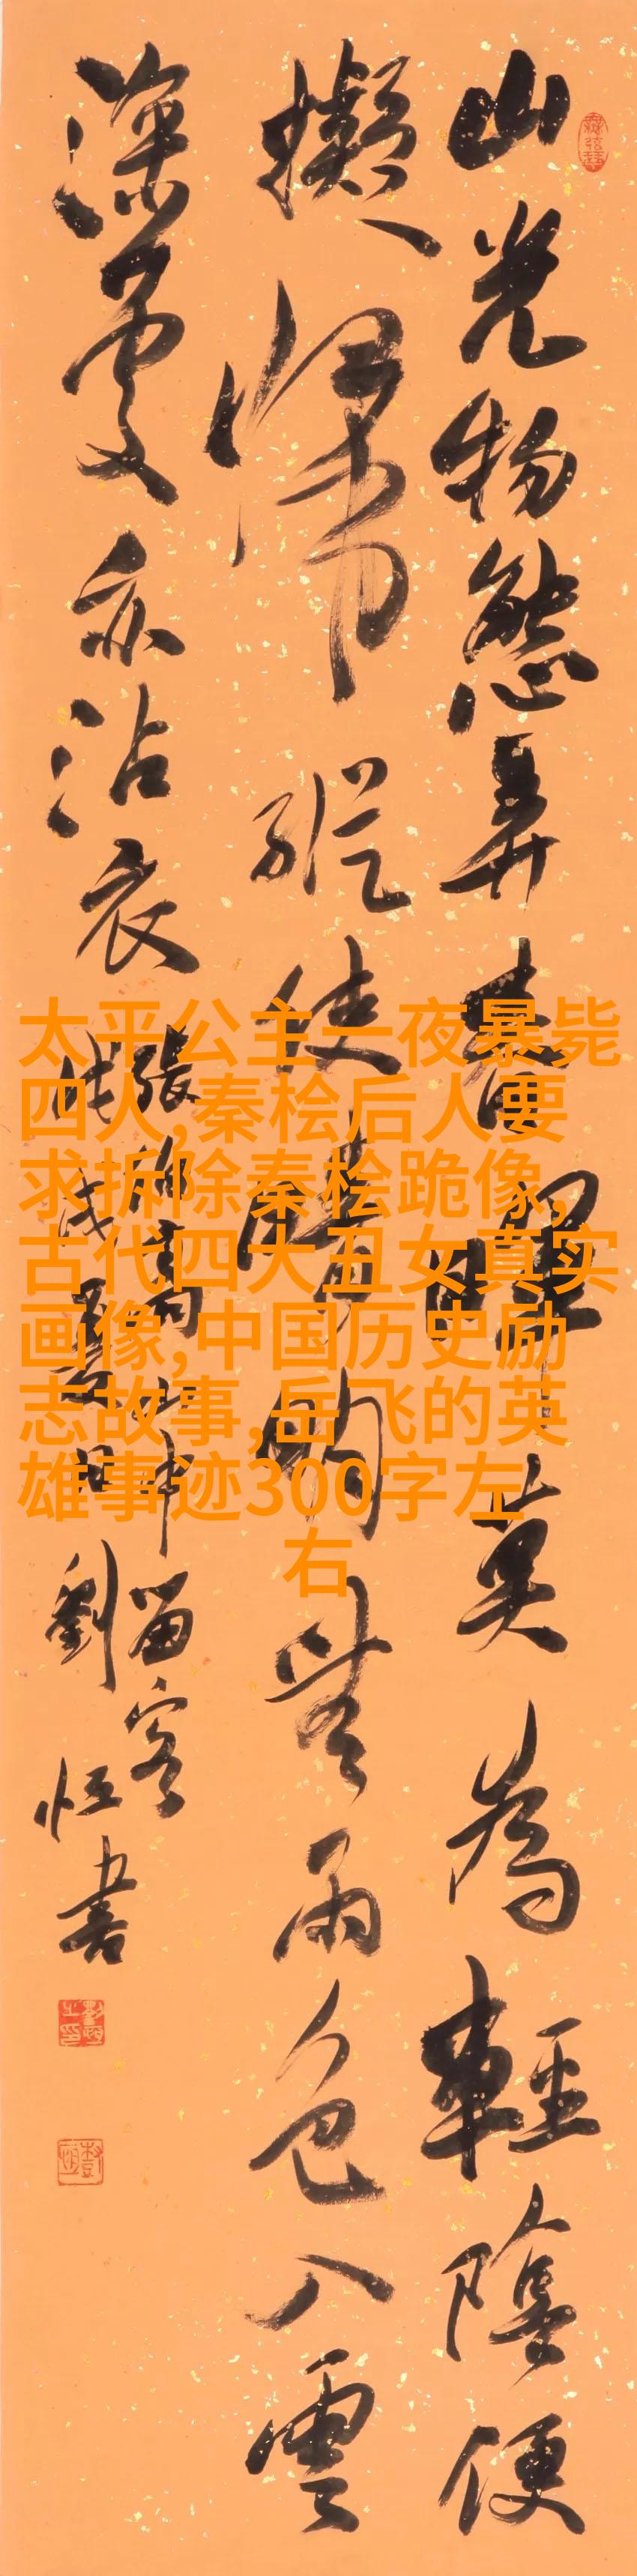 山光物態弄春暉莫為輕陰便
擬歸縱使晴明無雨色入雲
深處亦沾衣
張旭 山中留客
劉恒書
太平公主一夜暴毙
四人,秦桧后人要
求拆除秦桧跪像,
古代四大丑女真实
画像,中国历史励
志故事,岳飞的英
雄事迹300字左
右